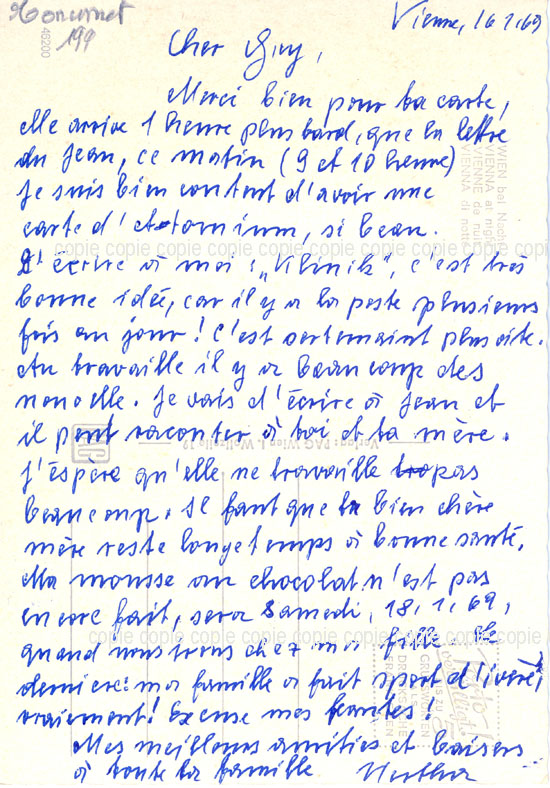 Monument
199
46200
Vienne, 16 1.69
Cher Guy,
Merci bien pour ta carte,
elle arrive 1 heure plus tard, que la lettre
du Jean, ce matin (9 et 10 heure)
Je suis bien content d'avoir une
carte d'Atominum, si beau.
D'écrire à moi: „Klinik", c'est très
bonne idée, car il y a la poste plusieurs
fois au jour! C'est sertemaint plus vite.
Au travaille il y a beaucoup des
nouvelle. Je vais d'écrire à Jean et
il peut raconter à toi et ta mère.
J'éspère qu'elle ne travaille pas
beaucoup. Il faut que ta bien chère
mère reste longetemps à bonne santé.
Ma mousse au chocolat n'est pas
encore fait, sera Samedi, 18.1.69,
quand nous trons chez ma fille. Le
derniere: ma famille a fait sport d'iver,
vraiment! Excuse mes feautes!
Mes meilleurs amitiés et baisers
à toute la famille Hertha
WIEN bei Nacht
VIENNA at night
VIENNE de nuit
VIENNA di notte
Verlag: PAG Wien I.
copie copie copie copie copie copie copie copie copie
copie copie copie copie copie copie copie copie copie